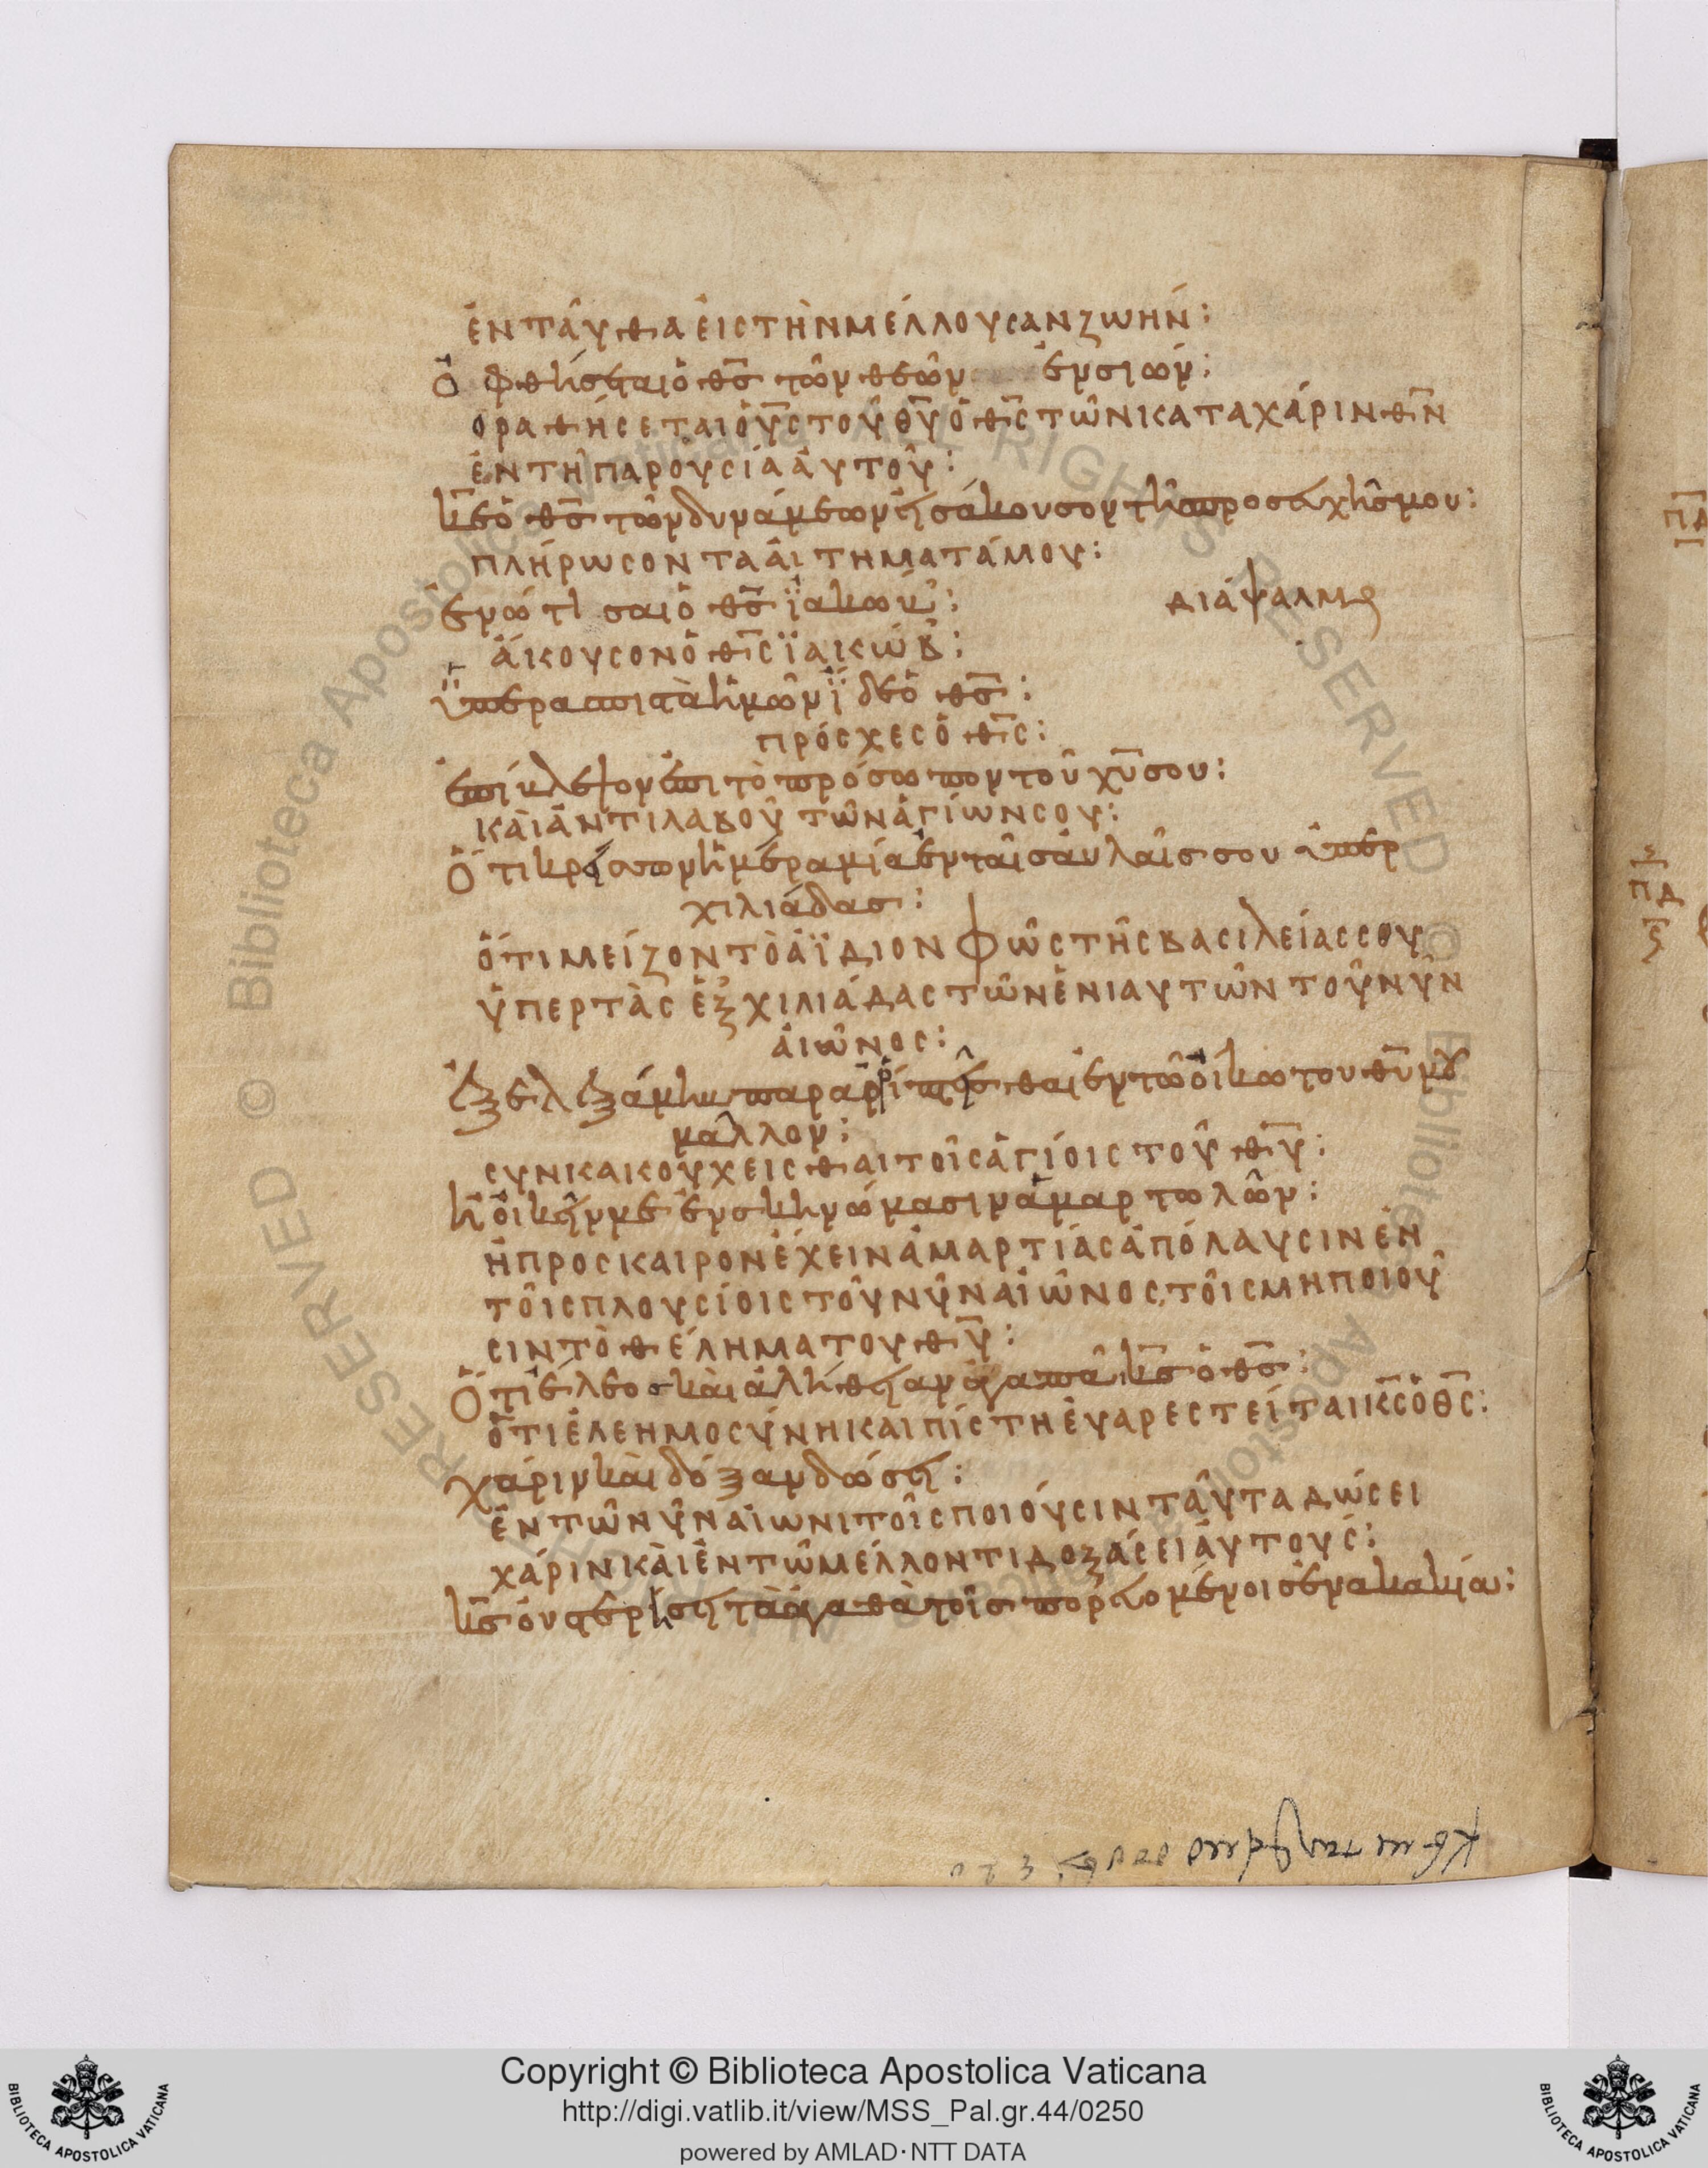 ἐνταῦθα εἰς τὴν μέλλουσαν ζωήν:
Ὀφθήσεται ὁ θ̅ς̅ τῶν θεῶν ἐν σιών:
ὁραθήσεται ὁ υ̅ς̅ τοῦ θ̅υ̅ ὁ θ̅ς̅ τῶν κατα χάριν θ̅ν̅
ἐν τῆ παρουσία αὐτοῦ:
κ̅ε̅ ὁ θ̅ς̅ τῶν δυνάμεων εἰσάκουσον τῆς προσευχῆς μου:
πλήρωσον τα αἰτηματά μου:
ἐνώτισαι ὁ θ̅ς̅ ϊακώβ:
διάψαλμα
ἄκουσον ὁ θ̅ς̅ ϊακώβ:
ὑπερασπιστὰ ἡμῶν ἴδε ὁ θ̅ς̅:
πρόσχες ὁ θ̅ς̅:
ἐπίβλεψον ἐπι τὸ πρόσωπον τοῦ χ̅υ̅ σου:
καὶ ἀντιλαβοῦ τῶν ἁγίων σου:
Ὅτι κρείσσων ἡμέρα μία ἐν ταῖς αὐλαῖς σου ὑπὲρ
χιλιάδας:
ὅτι μείζον τὸ ἀΐδιον φῶς τῆς βασιλείας σου
ὑπερ τὰς ἓξ χιλιάδας τῶν ἐνιαυτῶν τοῦ νῦν
αἰῶνος:
Ἐξελεξάμην παραρίπτεῖσθαι ἐν τῶ οἴκω του θ̅υ̅ μου
μᾶλλον:
συνκακουχεισθαι τοῖς ἁγίοις τοῦ θ̅υ̅:
ἢ οἰκεῖν με ἐν σκηνώμασιν ἁμαρτωλῶν:
ἢ προσκαιρον ἔχειν ἁμαρτίας ἀπόλαυσιν ἐν
τοῖς πλουσίοις τοῦ νῦν αἰῶνος, τοῖς μη ποιοῦ
σιν τὸ θέλημα του θ̅υ̅:
Ὅτι ἔλεος καὶ ἀλήθειαν ἀγαπᾶ κ̅ς̅ ὁ θ̅ς̅:
ὅτι ἐλεημοσύνη και πίστη εὐαρεστείται κ̅ς̅ ὁ θ̅ς̅:
χάριν καὶ δόξαν δώσει:
ἐν τῶ νῦν αἰωνι τοῖς ποιούσιν ταῦτα δώσει
χάριν καὶ ἐν τῶ μέλλοντι δοξάσει αὐτούς:
κ̅ς̅ ὀυ στερήσει τὰ ἀγαθὰ τοῖς πορευομένοις ἐν ακακία:
Copyright © Biblioteca Apostolica Vaticana
http://digi.vatlib.it/view/MSS_Pal.gr.44/0250
powered by AMLAD·NTT DATA